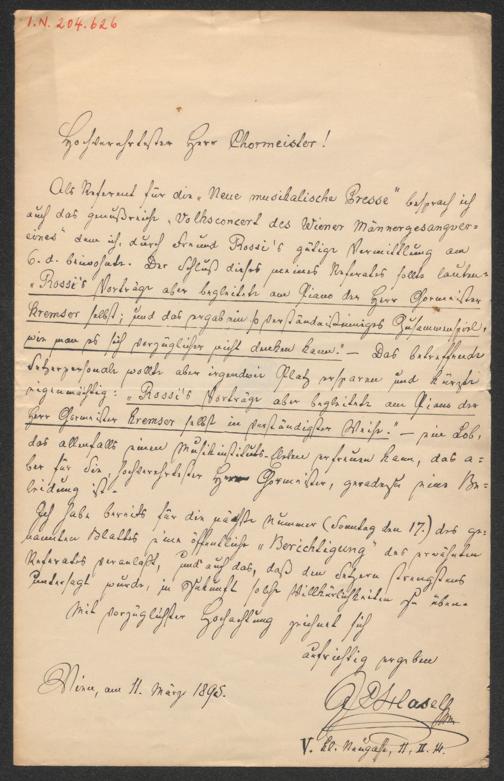 I.N. 204.626
Hochverehrtester Herr Chormeister!
Als Referent für die „Neue musikalische Presse" besprach ich
auch das genußreiche „Volksconcert des Wiener Männergesangver-
eines" dem ich, durch Freund Rossi's gütige Vermittlung am
6. d. beiwohnte. Der Schluß dieses meines Referates sollte lauten:
„Rossi's Vorträge aber begleitete am Piano der Herr Chormeister
Kremser selbst; und das ergab ein so verständnisinniges Zusammenspiel,
wie man es sich vorzüglicher nicht denken kann." – Das betreffende
Setzerpersonale wollte aber irgendwie Platz ersparen und kürzte
eigenmächtig: „Rossi's Vorträge aber begleitete am Piano der
Herr Chormeister Kremser selbst in verständigster Weise." – ein Lob,
das allenfalls einen Musikinstituts-Eleven erfreuen kann, das a-
ber für Sie, hochverehrtester Herr Chormeister, geradezu eine Be-
leidung ist.
Ich habe bereits für die nächste Nummer (Sonntag den 17.) des ge-
nannten Blattes eine öffentliche „Berichtigung" des erwähnten
Referates veranlaßt, und auch das, daß den Setzern strengstens
untersagt wurde, in Zukunft solche Willkürlichkeiten zu üben.
Mit vorzüglichster Hochachtung zeichnet sich
aufrichtig ergeben
Wien, am 11. März 1895.
V. Kl. Neugasse, 11, II. 14.